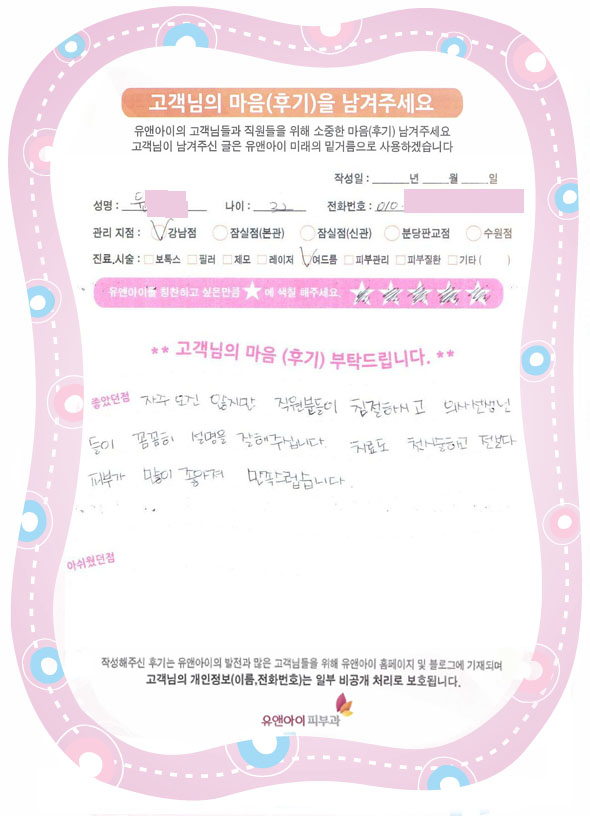 고객님의 마음(후기)을 남겨주세요
유앤아이의 고객님들과 직원들을 위해 소중한 마음(후기) 남겨주세요
고객님이 남겨주신 글은 유앤아이 미래의 밑거름으로 사용하겠습니다
작성일 : 년 월 일
성명 : 나이 : 32 전화번호 : 010-
관리 지점 : 강남점 잠실점(본관) 잠실점(신관) 분당판교점 수원점
진료,시술 : 보톡스 필러 제모 레이저 여드름 피부관리 피부질환 기타 ( )
유앤아이를 칭찬하고 싶은만큼 ★ 에 색칠 해주세요. ★★★★★
** 고객님의 마음 (후기) 부탁드립니다. **
좋았던점 자주 오진 않지만 직원분들이 친절하시고 의사선생님
들이 꼼꼼히 설명을 잘해주십니다. 치료도 전보다
피부가 많이 좋아져 만족스럽습니다.
아쉬웠던점
작성해주신 후기는 유앤아이의 발전과 많은 고객님들을 위해 유앤아이 홈페이지 및 블로그에 기재되며
고객님의 개인정보(이름,전화번호)는 일부 비공개 처리로 보호됩니다.
유앤아이피부과